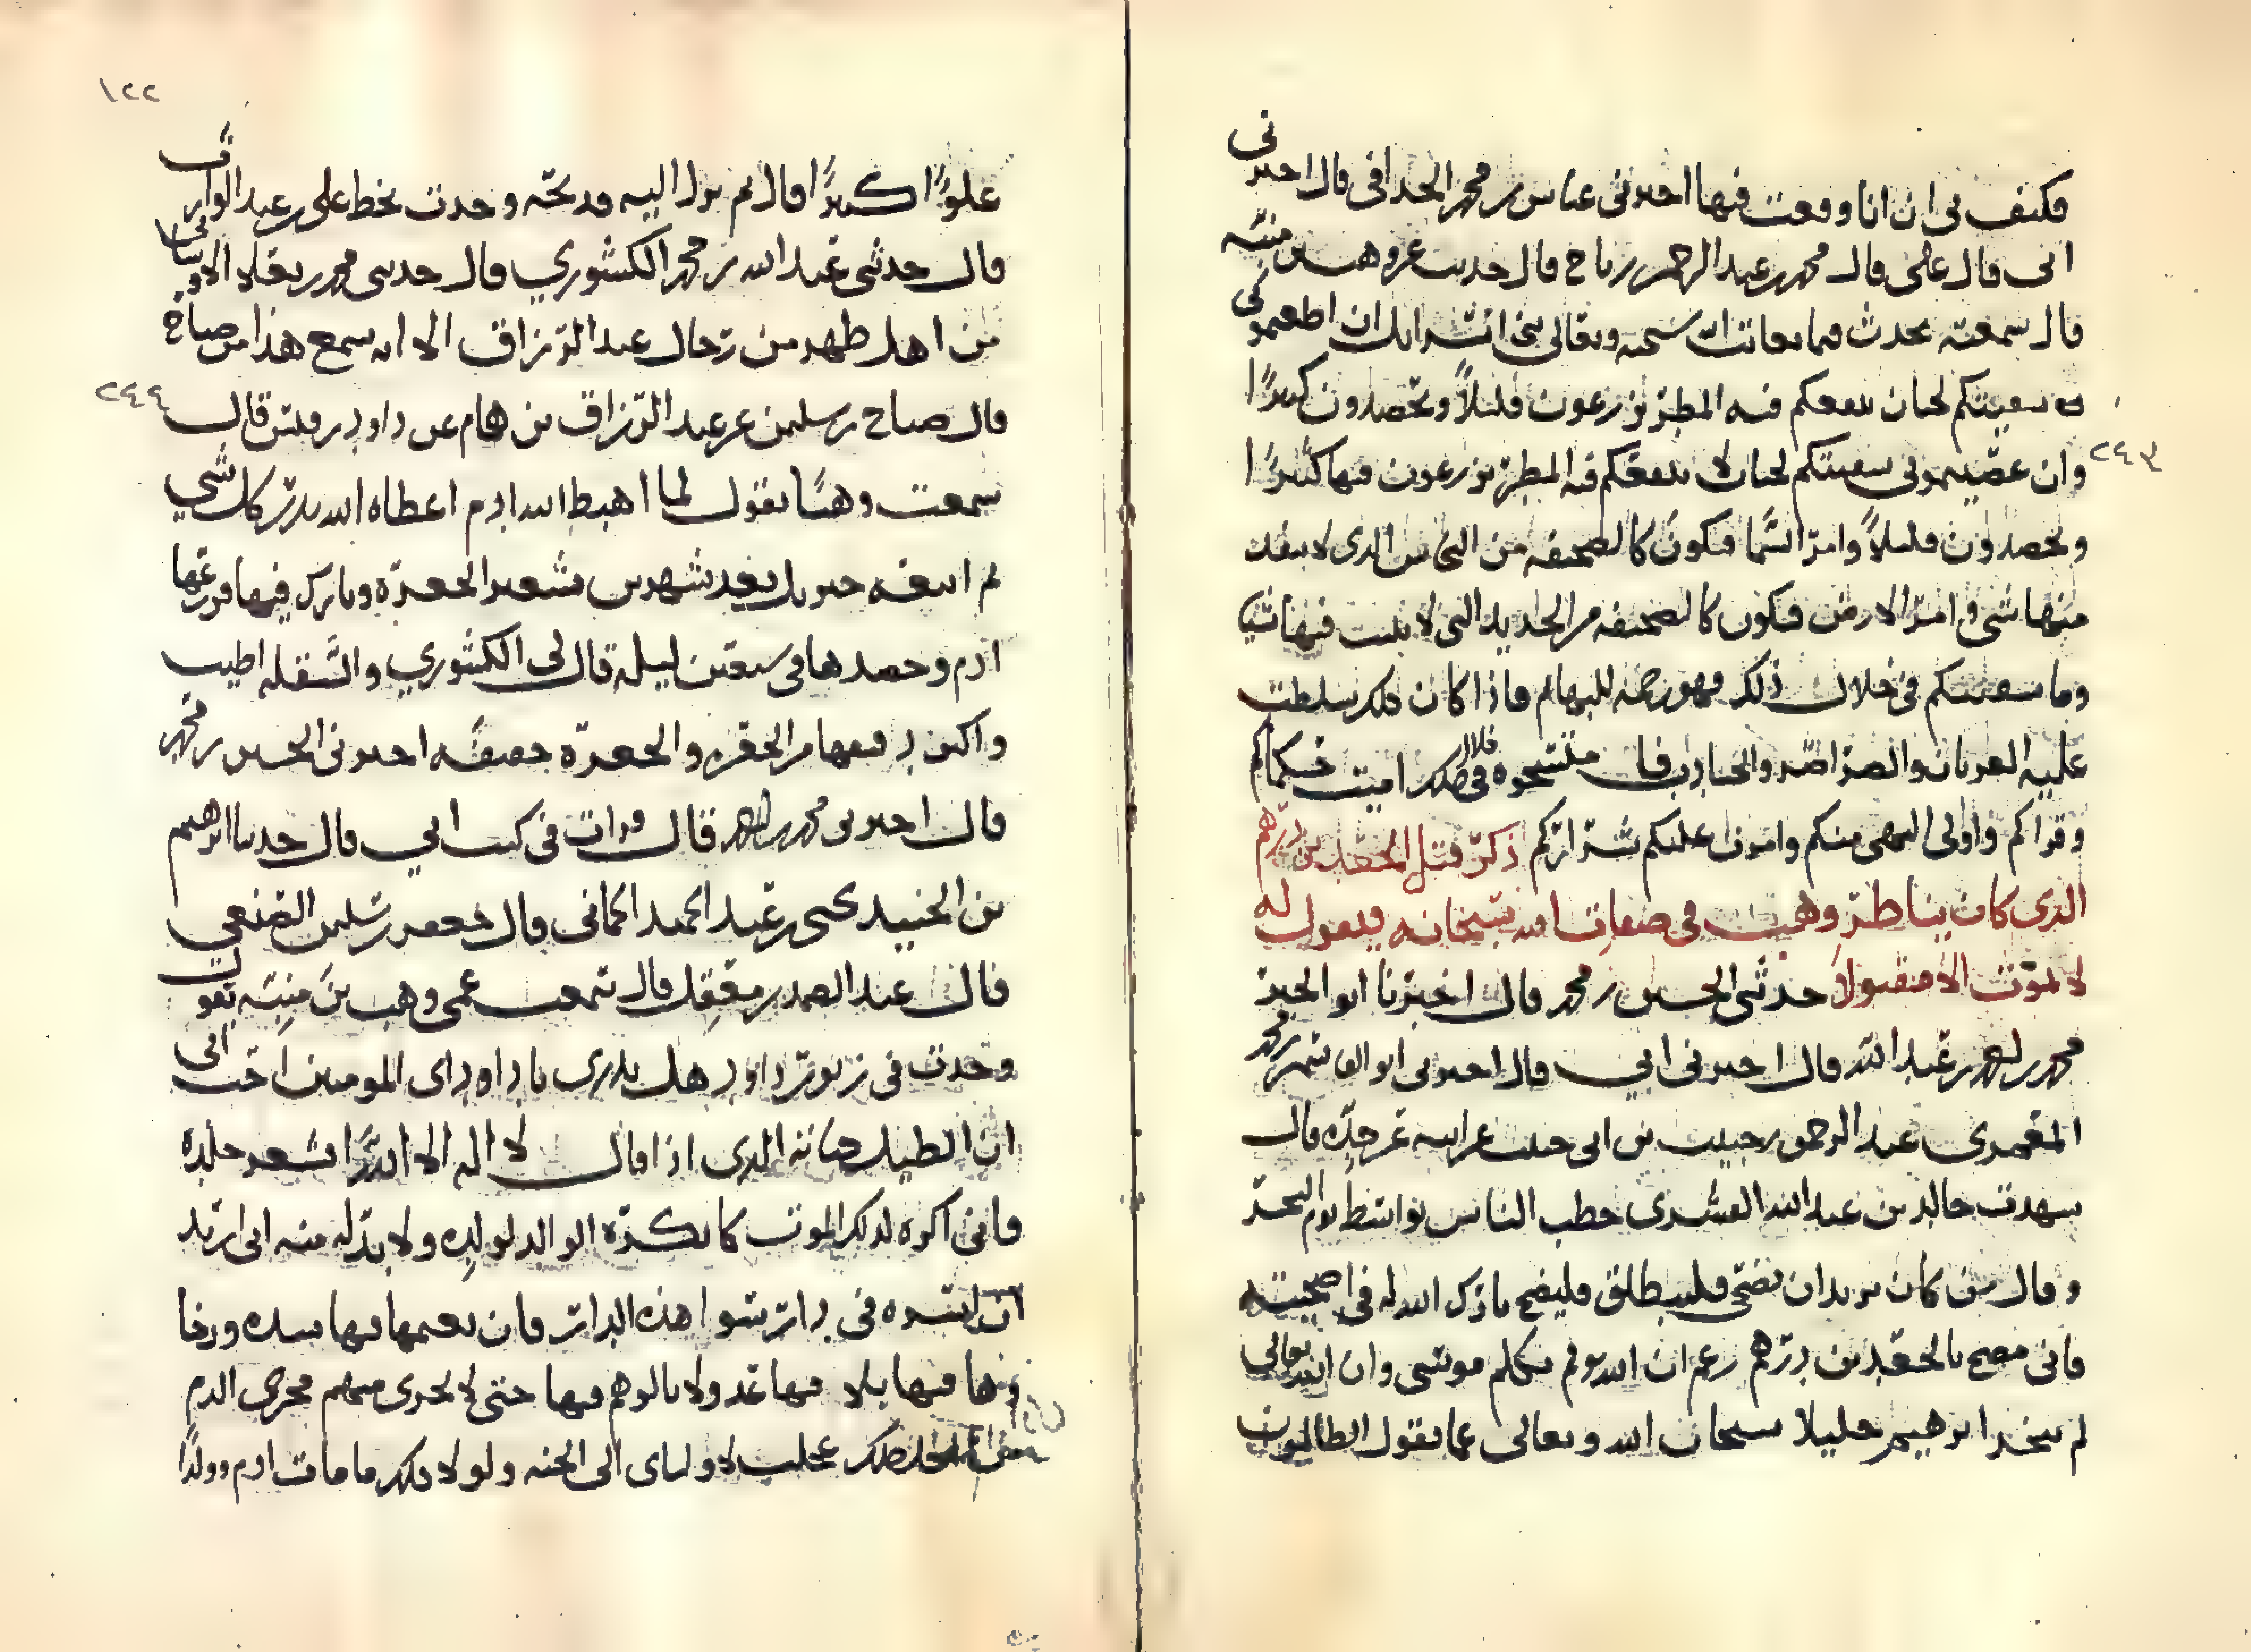 فكيف بي ان انا وقعت فيها اخبرني عباس بن محمد الحدافي قال اخبرني
ابي قال علي قال محمد بن عبد الرحمن بن رباح قال حديث عن وهب بن منبه
قال سمعته يحدث فيما يعاتب الله سبحانه وتعالى بني اسرايل ان اطعتموني
سقيتكم لحيان ينفعكم فيه المطر تزرعون قليلاً وتحصدون كثيرًا
٢٤٣
وان عصيتموني سقيتكم لحيان لا ينفعكم فيه المطر تزرعون فيها كثيرًا
وتحصدون قليلاً وامر السما فيكون كالصحيفه من النحاس الذي لا ينفد
منها شي وامر الارض فتكون كالصحيفه من الحديد التي لا ينبت فيها شيا
وما سقيتكم في خلال ذلك فهو رحمه للبهايم فاذا كان ذلك سلطت
عليه الغربان والصراصر والجنادب فان في خلال ذلك امت حكماكم
وقراكم واولي النهي منكم وامرت عليكم شراركم ذكر قتل الجعد بن درهم
الذي كان يناظر وهب في صفات الله سبحانه فيقول له
لا تموت الا مقتولا حدثني الحسين بن محمد قال اخبرنا ابو الخير
محمد بن عبد الله قال اخبرني ابي قال اخبرني ابو القاسم بن محمد
المعمري عبد الرحمن بن حبيب بن ابي حبيب عن ابيه عن جده قال
شهدت خالد بن عبد الله القسري خطب الناس بواسط يوم النحر
وقال من كان يريد ان يضحي فلينطلق فليضح بارك الله له في اضحيته
فاني مضح بالجعد بن درهم زعم ان الله لم يكلم موسى وان الله تعالى
لم يتخذ ابرهيم خليلا سبحان الله وتعالى عما يقول الظالمون
١٢٢
علوًا كبيرًا قال ثم نزل اليه فذبحه وجدت بخط علي بن عبد الوارث
قال حدثني عبد الله بن محمد الكشوري قال حدثني محمد بن
من اهل ظهر من رحال عبد الرزاق الا انه سمع هذا من صباح
٢٤٤
قال صباح بن سليمن عن عبد الرزاق بن همام عن داود بن قيس قال
سمعت وهبًا يقول لما اهبط الله ادم اعطاه الله بذر كل شي
ثم اتبعه جبريل بعد شهرين بشعير الجعرة وبارك فيها فزرعها
ادم وحصدها في سبعين ليله قال لي الكشوري والسقله اطيب
واكثر دقيقها من الجعره والجعرة خفيفه اخبرني الحسين بن محمد
قال اخبرني محمد بن قال قرات في كتب ابي قال حدثنا ابرهيم
بن الجنيد يحيى بن عبد الحميد الحماني قال جعفر بن سليمن الضبعي
قال عبد الصمد بن معقل قال سمعت عمي وهب بن منبه يقول
وجدت في زبور داود هل تدري يا داود اي المومنين احب الي
ان اطيل حياته الذي اذا قال لا اله الا الله اقشعر جلده
فاني اكره لذلك الموت كما تكره الوالد لولده ولا بد له منه اني اريد
ان اسره في دار سوا هذه الدار فان نعيمها فيها شده ورخا
فيها بلا فيها عدو لا يالوهم فيها حتى لا يجري منهم مجرى الدم
عجلت لاولياي الى الجنه ولولا ذلك ما مات ادم وولدًا